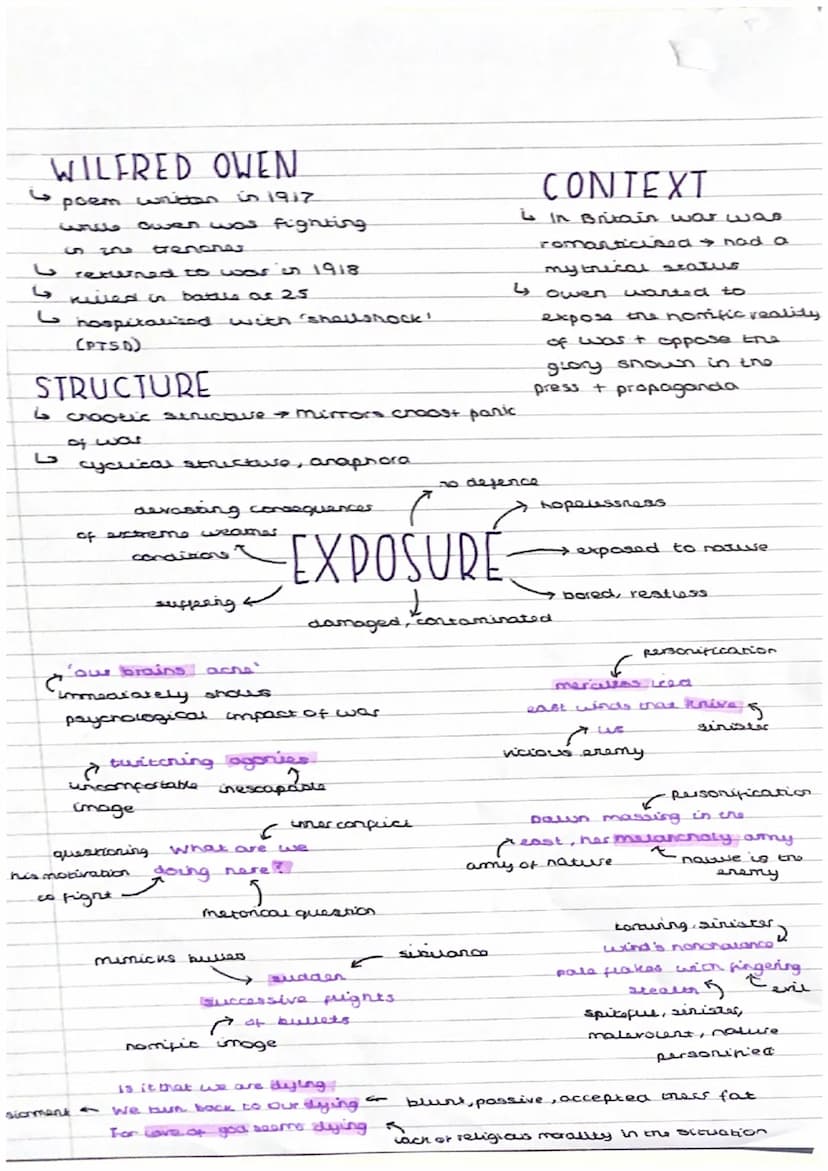 WILFRED OWEN
↳ poem written in 1917
while Owen was fighting
in the trenches
↳ returned to war in 1918
↳ killed in battle at 25
↳ hospitalised with 'shellshock'
(PTSD)
CONTEXT
↳ In Britain war was
romanticised → had a
mythical status
↳ Owen wanted to
expose the horrific reality
of war + oppose the
glory shown in the
press + propaganda
STRUCTURE
↳ chaotic structure → mirrors chaos + panic
of war
↳ cyclical structure, anaphora
EXPOSURE
no defence
hopelessness
exposed to nature
bored, restless
damaged, contaminated
suffering
devasting consequences
of extreme weather
conditions
'our brains ache'
immediately shows
psychological impact of war
personification
merciless iced
east winds that knive
us
sinister
vicious enemy
twitching agonies
uncomfortable inescapable
image
personification
Dawn massing in the
east, her melancholy army
army of nature
nature is the
enemy
inner conflict
questioning What are we
his motivation doing here?
to fight
rhetorical question
mimicks bullets
sibilance
sudden
successive flights
of bullets
horrific image
torturing, sinister
wind's nonchalance
pale flakes with fingering
stealth
evil
spiteful, sinister,
malevolent, nature
personified
Is it that we are dying?
We turn back to our dying ← blunt, passive, accepted their fat
For love of god seems dying
lack of religious morality in the situation